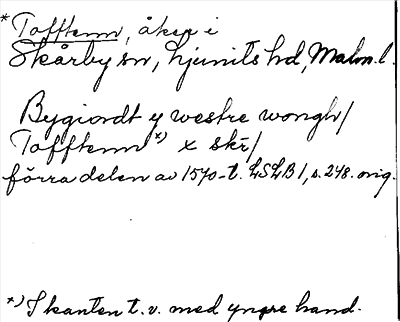 * Tofftenn, åker i
Skårby sn, Ljunits hd, Malm. l.
Bygiordt y westre wongh/
Tofftenn *) x skr/
förra delen av 1570-t. LSLB 1, s. 248. orig.
*) I kanten t. v. med yngre hand.